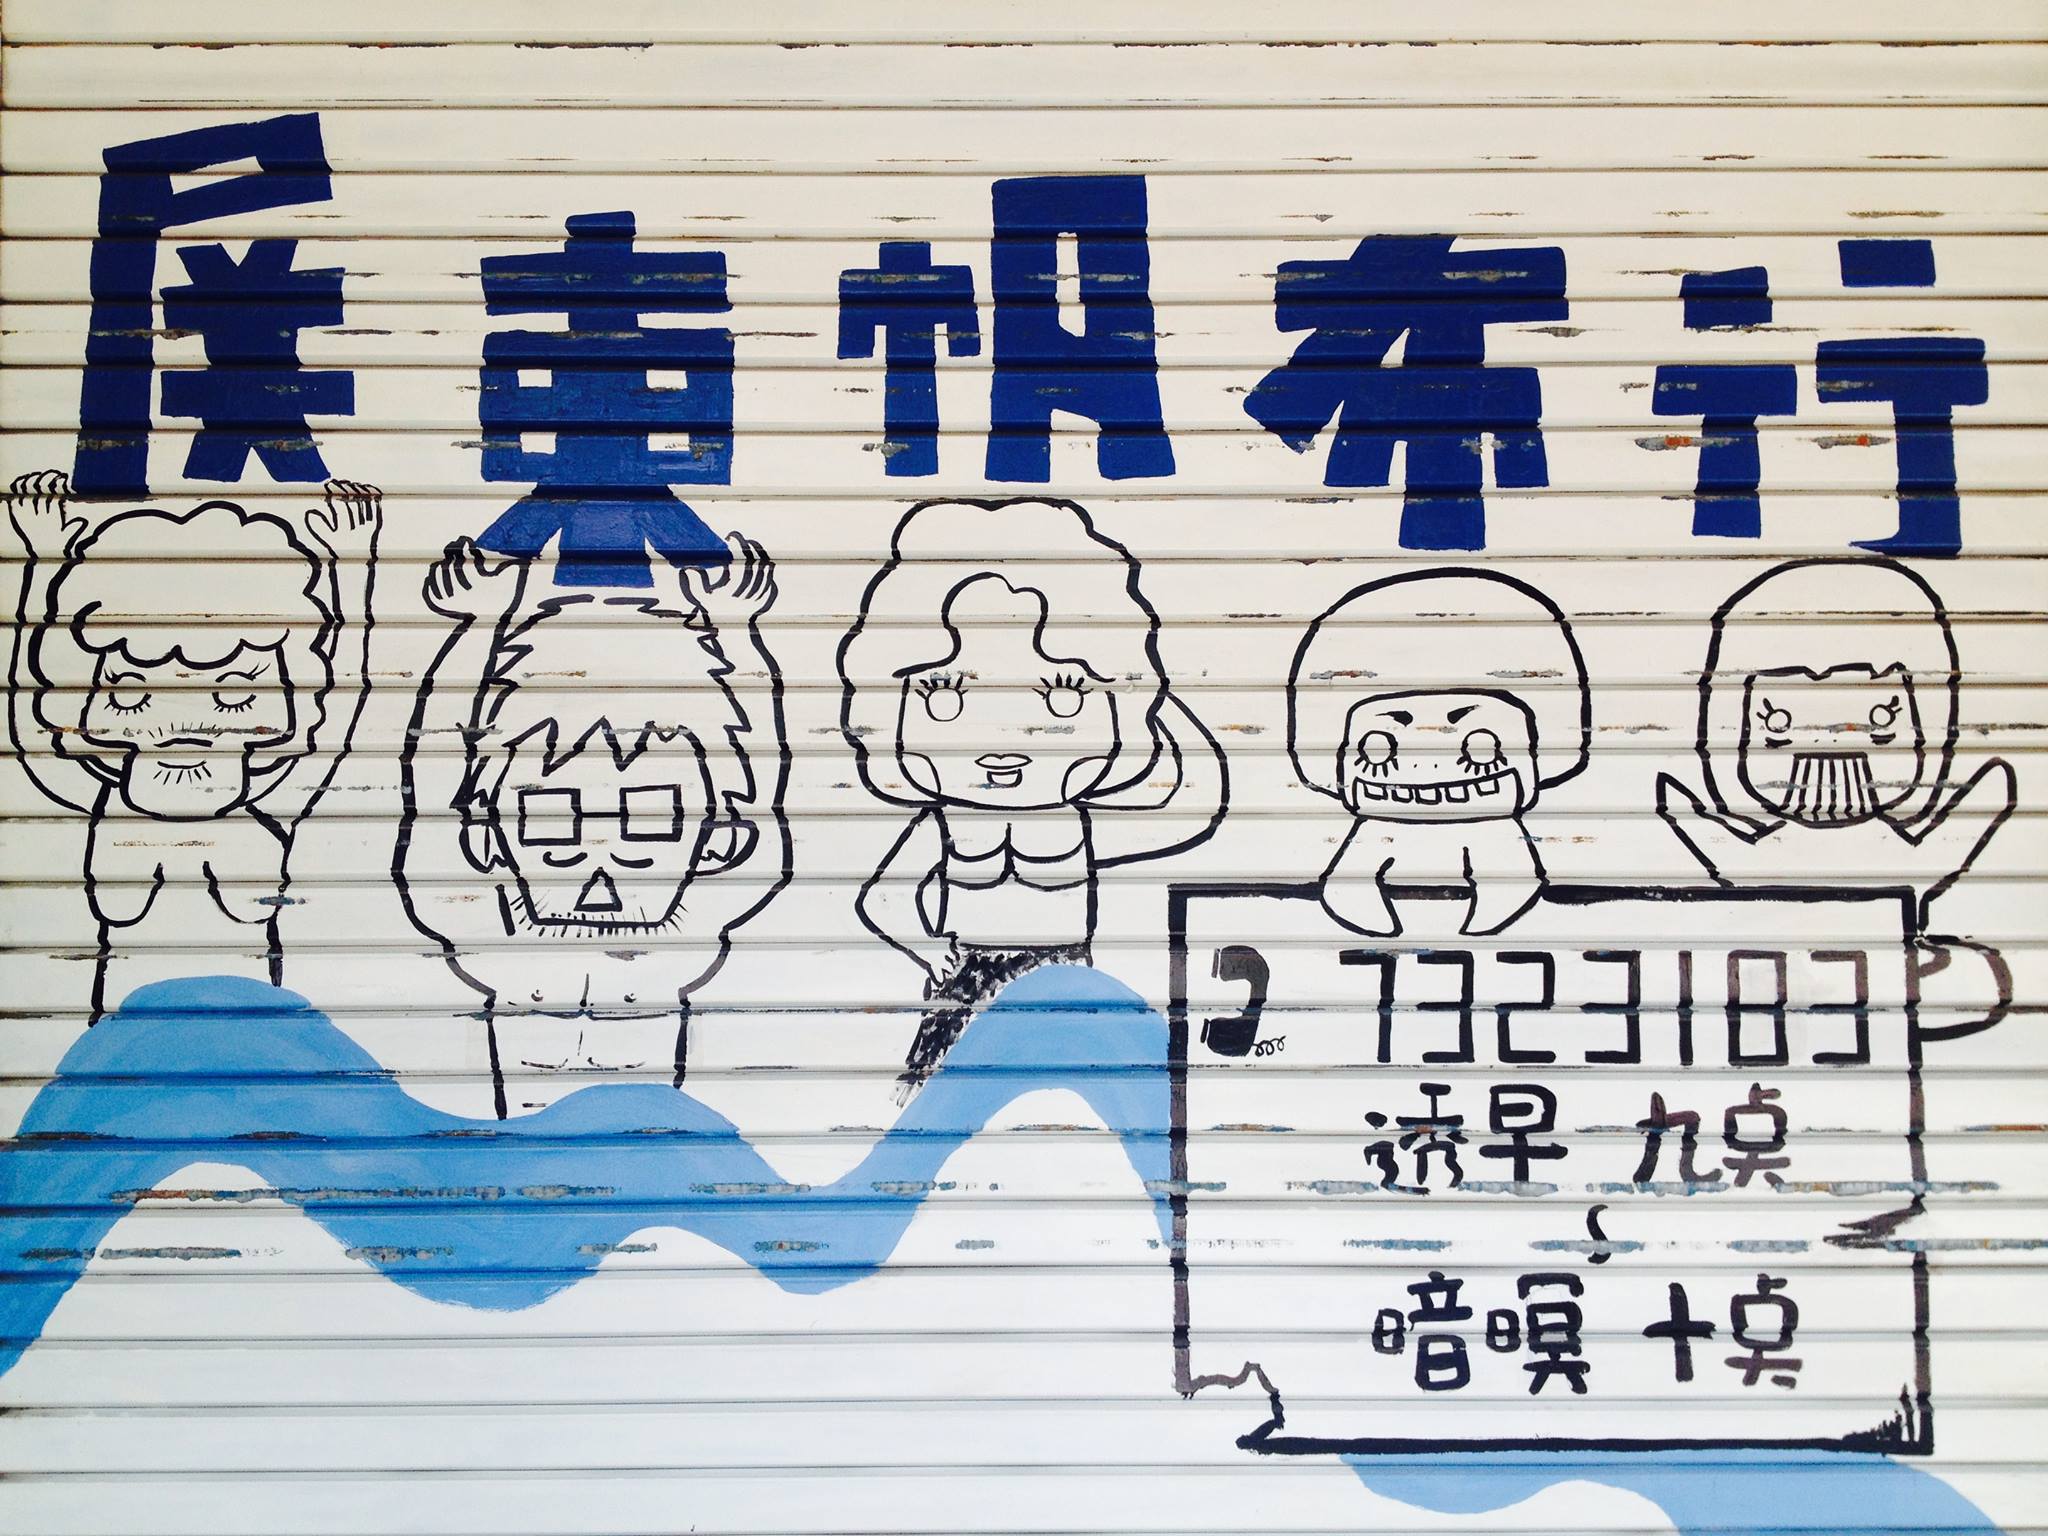 屏東帆布行
7323183
透早 九点
～
暗暝 十点